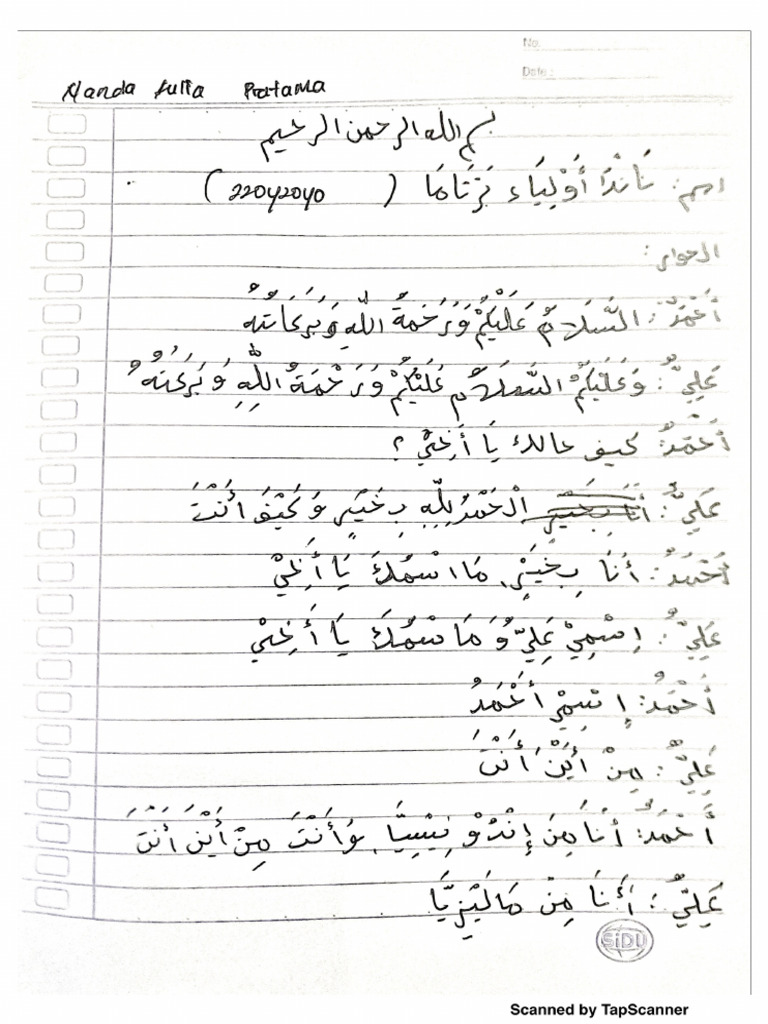 No.
Date :
Nanda Aulia Pratama
بسم الله الرحمن الرحيم
اسم: نَانْدَا أَوْلِيَاء بَرَتَامَا ( 22042040 )
الحوار:
أَحْمَدُ: السَّلَامُ عَلَيْكُمْ وَرَحْمَةُ اللَّهِ وَبَرَكَاتُهُ
عَلِيٌّ: وَعَلَيْكُمُ السَّلَامُ عَلَيْكُمْ وَرَحْمَةُ اللَّهِ وَبَرَكَتُهُ
أَحْمَدُ: كيف حالك يَا أَخِيْ ؟
عَلِيٌّ: أَنَا بِخَيْرٍ الْحَمْدُ لِلَّهِ بِخَيْرٍ وَكَيْفَ أَنْتَ
أَحْمَدُ: أَنَا بِخَيْرٍ. مَا اسْمُكَ يَا أَخِيْ
عَلِيٌّ: إِسْمِيْ عَلِيٌّ وَمَا سْمُكَ يَا أَخِيْ
أَحْمَدُ: إِسْمِيْ أَحْمَدُ
عَلِيٌّ: مِنْ أَيْنَ أَنْتَ
أَحْمَدُ: أَنَا مِنَ إِنْدُوْنِيْسِيَّا. وَأَنْتَ مِنْ أَيْنَ أَنْتَ
عَلِيٌّ: أَنَا مِنْ مَالَيْزِيَّا
SIDU
Scanned by TapScanner